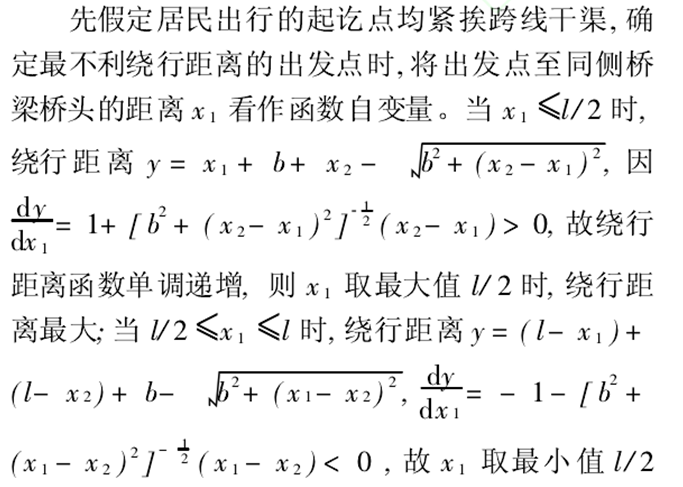 先假定居民出行的起讫点均紧挨跨线干渠,确
定最不利绕行距离的出发点时,将出发点至同侧桥
梁桥头的距离 x₁ 看作函数自变量。当 x₁ ≤l/2 时,
绕行距离 y = x₁ + b+ x₂ − √b² + (x₂ − x₁)², 因
dy/dx₁ = 1+ [b² + (x₂− x₁)²]^-1/2 (x₂− x₁) > 0, 故绕行
距离函数单调递增, 则 x₁ 取最大值 l/2 时, 绕行距
离最大; 当 l/2 ≤x₁ ≤l 时, 绕行距离 y = (l− x₁) +
(l− x₂) + b− √b² + (x₁− x₂)², dy/dx₁ = − 1 − [b² +
(x₁ − x₂)²]^- 1/2 (x₁ − x₂) < 0 , 故 x₁ 取最小值 l/2